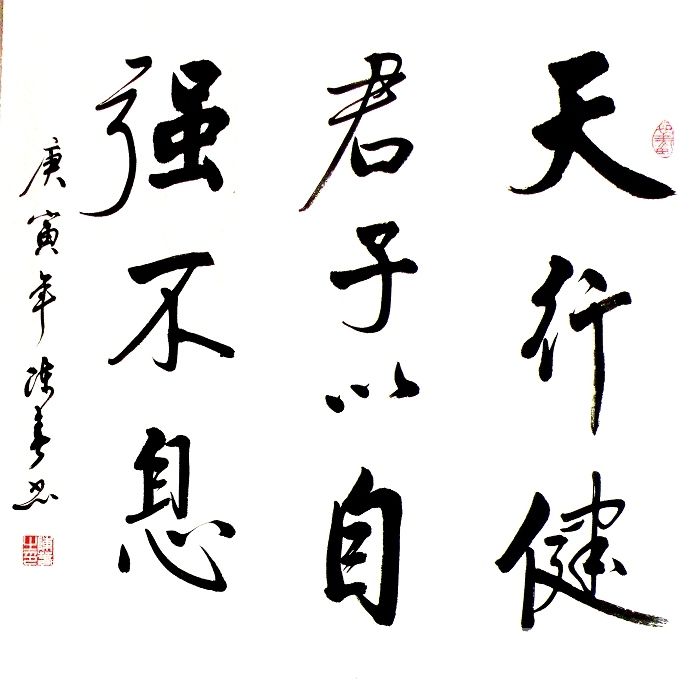 天行健
君子以自
强不息
庚寅年陈春思